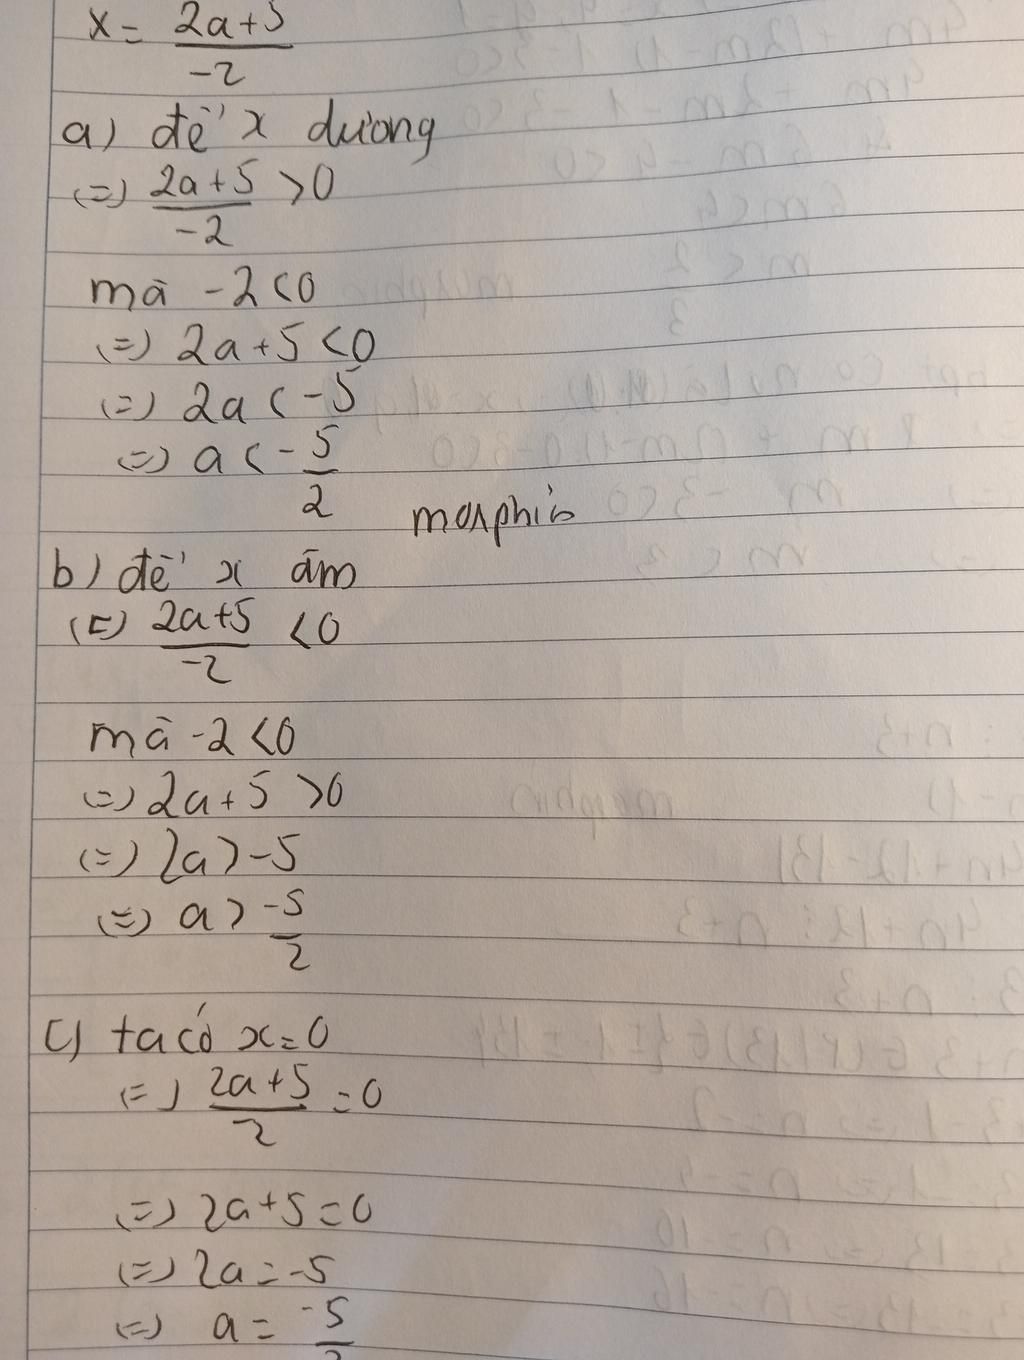 x = 2a+5
-2
a) để x dương
(=) 2a+5 >0
-2
mà -2<0
(=) 2a+5<0
(=) 2a<-5
(=) a<-5
2
morphin
b) để x âm
(=) 2a+5 <0
-2
mà -2<0
(=) 2a+5 >0
(=) 2a>-5
(=) a> -5
2
c) ta có x=0
(=) 2a+5 =0
2
(=) 2a+5=0
(=) 2a=-5
(=) a= -5
2